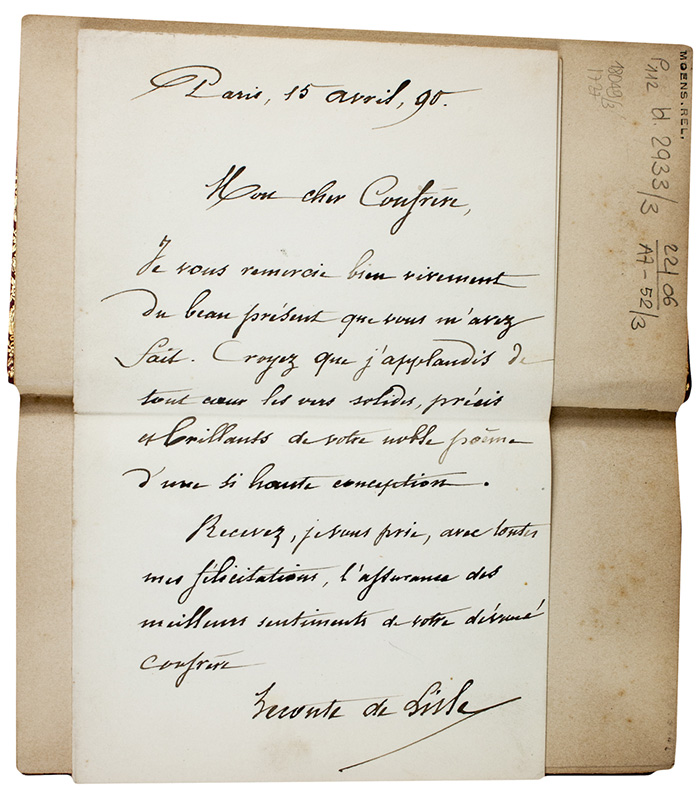 Paris, 15 avril, 90.
Mon cher Confrère,
Je vous remercie bien vivement
du beau présent que vous m'avez
fait. Croyez que j'applaudis de
tout cœur les vers solides, précis
et brillants de votre noble poëme
d'une si haute conception.
Recevez, je vous prie, avec toutes
mes félicitations, l'assurance des
meilleurs sentiments de votre dévoué
confrère
Leconte de Lisle
MOENS. REL.
P112 H. 2933/3
2206
A7-52/3